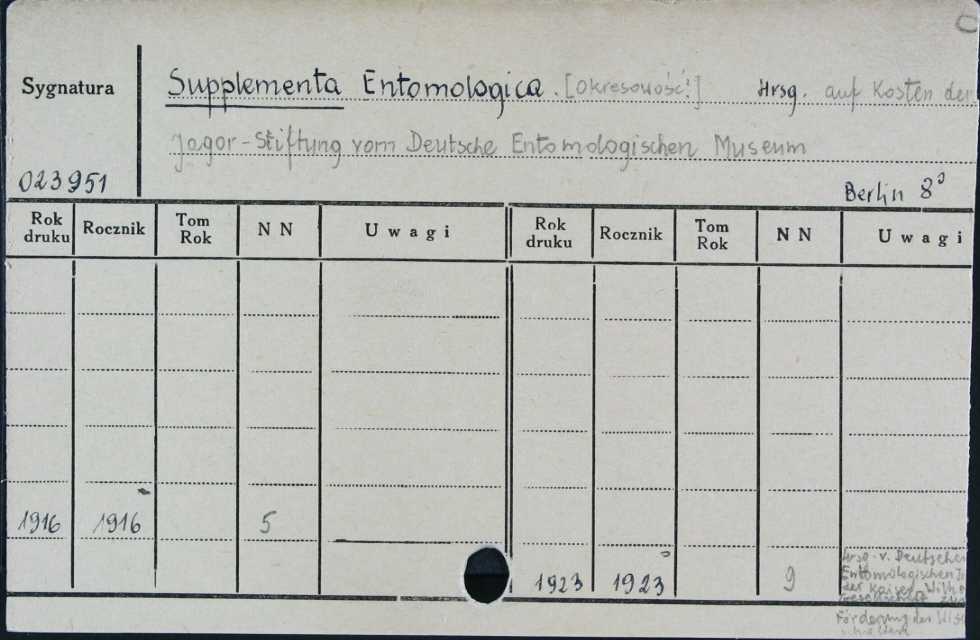 Sygnatura
Supplementa Entomologica. [Okresowość!] Hrsg. auf Kosten der
Jagor-Stiftung vom Deutsche Entomologischen Museum
023951
Berlin 8°
Rok druku Rocznik Tom Rok NN Uwagi Rok druku Rocznik Tom Rok NN Uwagi
1916 1916 5
1923 1923 9
Hrsg. v. Deutschen
Entomologischen
der Kaiser Wilh
Gesellschaft
Förderung der